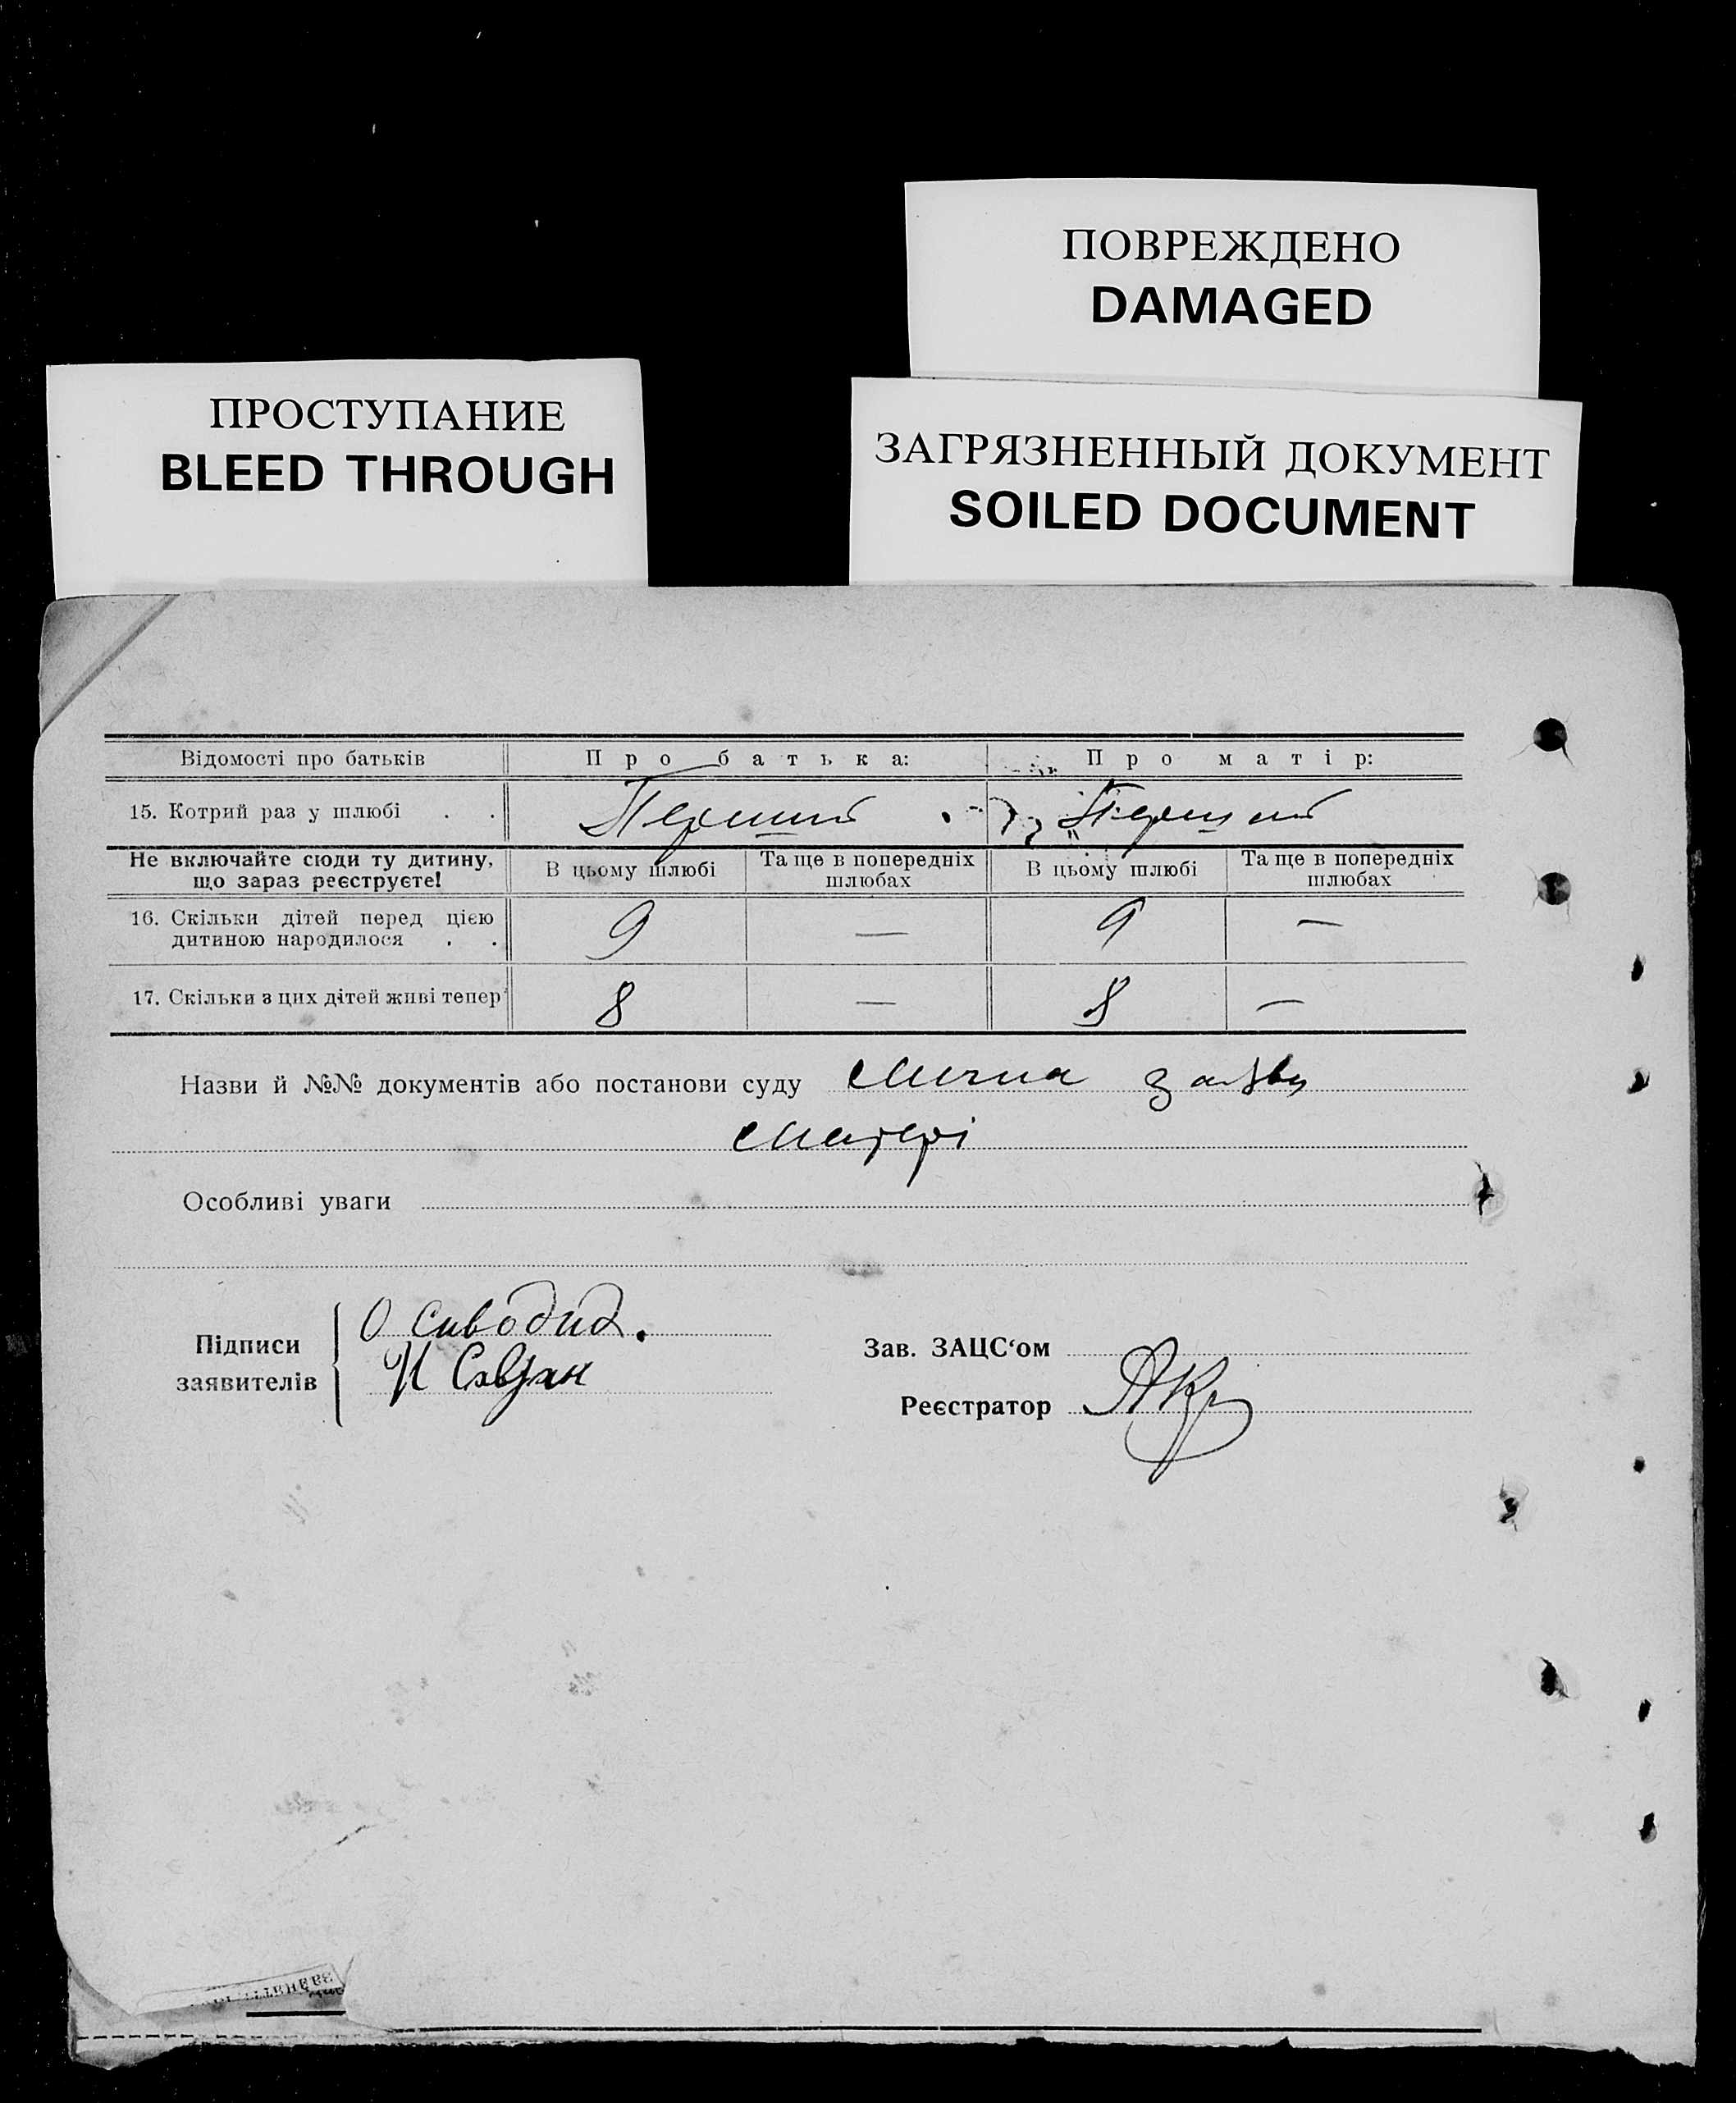 ПОВРЕЖДЕНО
DAMAGED
ПРОСТУПАНИЕ
BLEED THROUGH
ЗАГРЯЗНЕННЫЙ ДОКУМЕНТ
SOILED DOCUMENT
Відомості про батьків Про батька: Про матір:
15. Котрий раз у шлюбі . . Перший Перший
Не включайте сюди ту дитину, що зараз реєструєте! В цьому шлюбі Та ще в попередніх шлюбах В цьому шлюбі Та ще в попередніх шлюбах
16. Скільки дітей перед цією
дитиною народилося . . 9 — 9 —
17. Скільки з цих дітей живі тепер 8 — 8 —
Назви й №№ документів або постанови суду заява
матері
Особливі уваги
Підписи
заявителів
О Сиводид.
Зав. ЗАЦС‘ом
Реєстратор